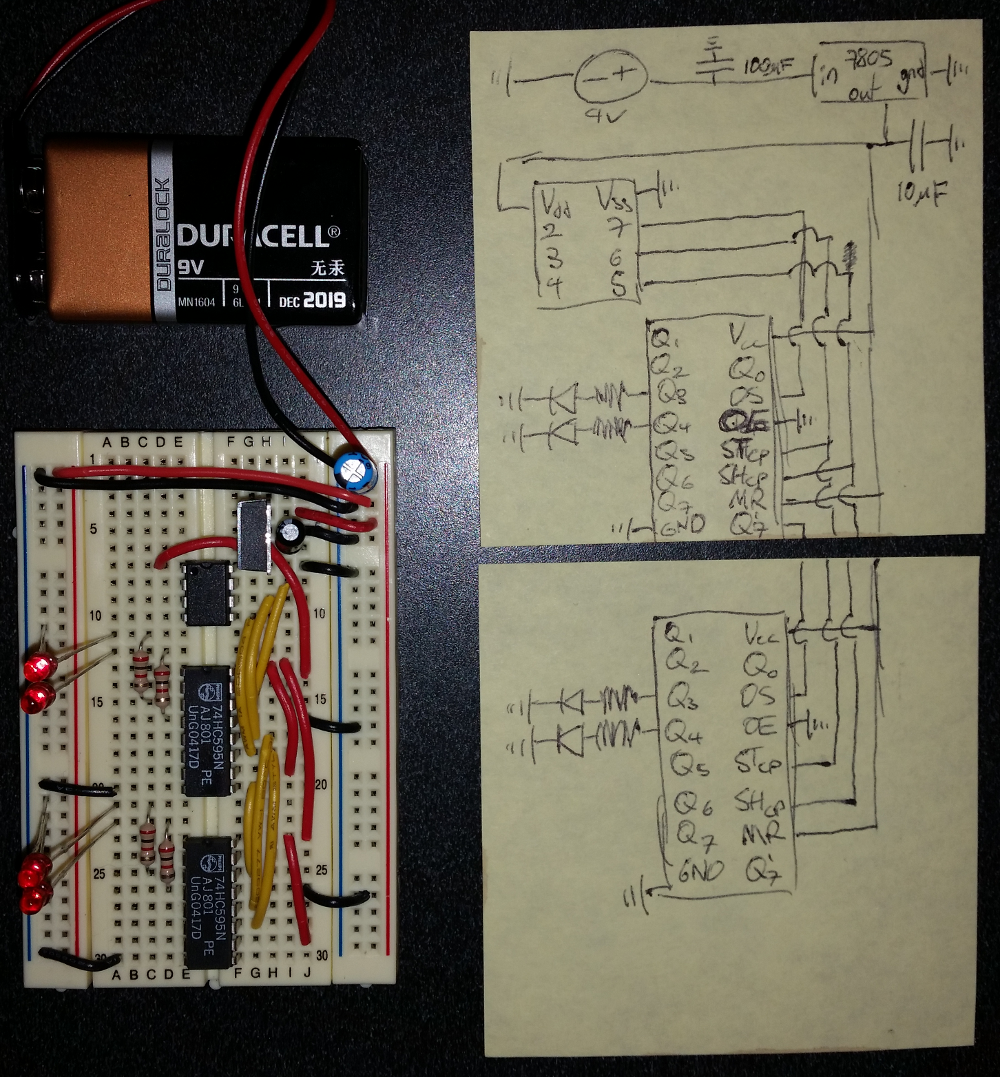 DURALOCK
DURACELL®
9V
无汞
MN1604
DEC 2019
A B C D E
F G H I
1
5
10
15
20
25
30
74HC595N
AJ801 PE
UnG0417D
74HC595N
AJ801 PE
UnG0417D
A B C D E
F G H I J
30
9V
- +
100µF
in 7805 gnd
out
10µF
Vdd Vss
2 7
3 6
4 5
Q1 Vcc
Q2 Q0
Q3 DS
Q4 OE
Q5 STcp
Q6 SHcp
Q7 MR
GND Q'7
Q1 Vcc
Q2 Q0
Q3 DS
Q4 OE
Q5 STcp
Q6 SHcp
Q7 MR
GND Q'7